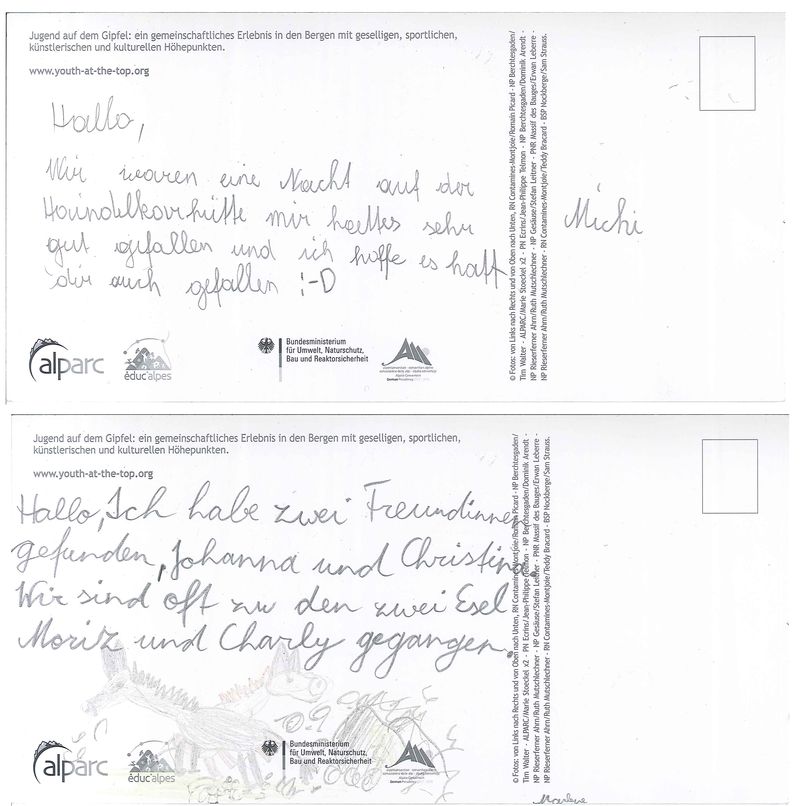 Jugend auf dem Gipfel: ein gemeinschaftliches Erlebnis in den Bergen mit geselligen, sportlichen,
künstlerischen und kulturellen Höhepunkten.
www.youth-at-the-top.org
Hallo,
Wir waren eine Nacht auf der
Haindelkarhütte mir hattes sehr
gut gefallen und ich hoffe es hatt
dir auch gefallen :-D
Michi
alparc
éduc'alpes
Bundesministerium
für Umwelt, Naturschutz,
Bau und Reaktorsicherheit
© Fotos: von Links nach Rechts und von Oben nach Unten, RN Contamines-Montjoie/Romain Picard - NP Berchtesgaden/
Tim Walter - ALPARC/Marie Stoeckel x2 - PN Ecrins/Jean-Philippe Telmon - NP Berchtesgaden/Dominik Arendt -
NP Rieserferner Ahrn/Ruth Mutschlechner - NP Gesäuse/Stefan Leitner - PNR Massif des Bauges/Erwan Leberre -
NP Rieserferner Ahrn/Ruth Mutschlechner - RN Contamines-Montjoie/Teddy Bracard - BSP Nockberge/Sam Strauss.
Jugend auf dem Gipfel: ein gemeinschaftliches Erlebnis in den Bergen mit geselligen, sportlichen,
künstlerischen und kulturellen Höhepunkten.
www.youth-at-the-top.org
Hallo, Ich habe zwei Freundinnen
gefunden, Johanna und Christina.
Wir sind oft zu den zwei Esel
Moriz und Charly gegangen.
alparc
éduc'alpes
Bundesministerium
für Umwelt, Naturschutz,
Bau und Reaktorsicherheit
Marlene
© Fotos: von Links nach Rechts und von Oben nach Unten, RN Contamines-Montjoie/Romain Picard - NP Berchtesgaden/
Tim Walter - ALPARC/Marie Stoeckel x2 - PN Ecrins/Jean-Philippe Telmon - NP Berchtesgaden/Dominik Arendt -
NP Rieserferner Ahrn/Ruth Mutschlechner - NP Gesäuse/Stefan Leitner - PNR Massif des Bauges/Erwan Leberre -
NP Rieserferner Ahrn/Ruth Mutschlechner - RN Contamines-Montjoie/Teddy Bracard - BSP Nockberge/Sam Strauss.